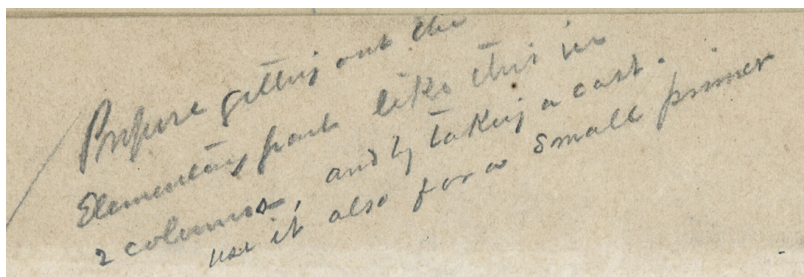 Propose getting out the
Elementary part like this in
2 columns, and by taking a cast.
use it also for a small primer